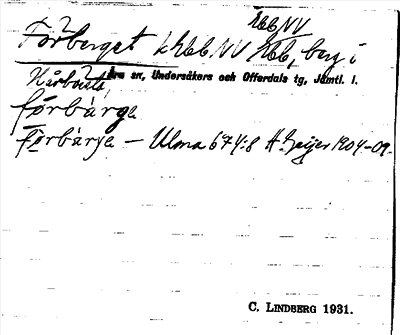 kbb NV
Förberget k kbb, NV kbb, berg i
Åre sn, Undersåkers och Offerdals tg, Jämtl. l.
förbärga
förbärja – Ulma 674:8 H. Geijer 1904-09.
C. LINDBERG 1931.